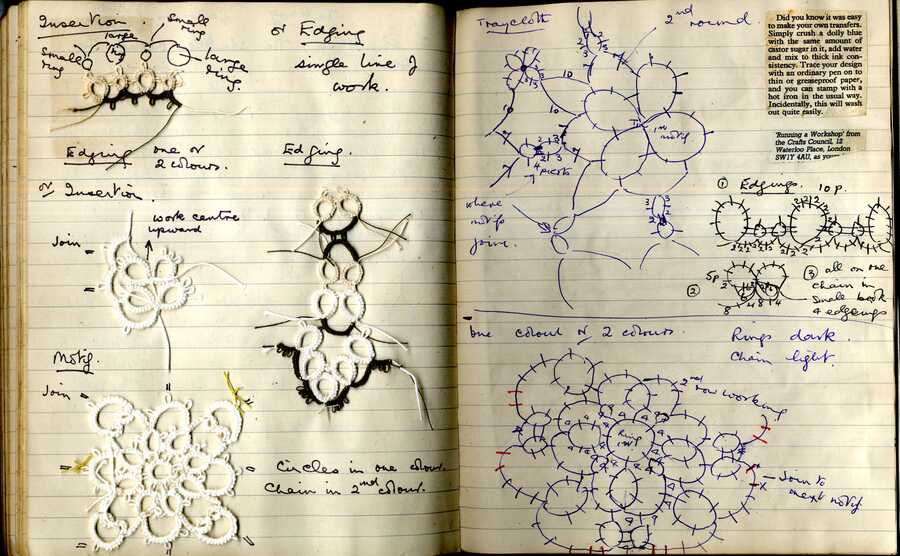 Insertion.
large
Small
ring
Small
ring
large
ring.
or Edging
single line of
work.
Edging one or
2 colours.
Edging
or Insertion.
work centre
upward
Join
Motif.
Join
Circles in one colour.
Chain in 2nd colour.
Traycloth
2nd
round
10
10
10
1st
motif
4 picots
where
motifs
join.
Did you know it was easy
to make your own transfers.
Simply crush a dolly blue
with the same amount of
castor sugar in it, add water
and mix to thick ink con-
sistency. Trace your design
with an ordinary pen on to
thin or greaseproof paper,
and you can stamp with a
hot iron in the usual way.
Incidentally, this will wash
out quite easily.
'Running a Workshop' from
the Crafts Council, 12
Waterloo Place, London
SW1Y 4AU, as your
① Edgings. 10 p.
5p
②
③ all on one
chain in
Small book
4 edgings
one colour or 2 colours.
Rings dark.
Chain light.
2nd
row working
Ring
1st
Join to
next motif.